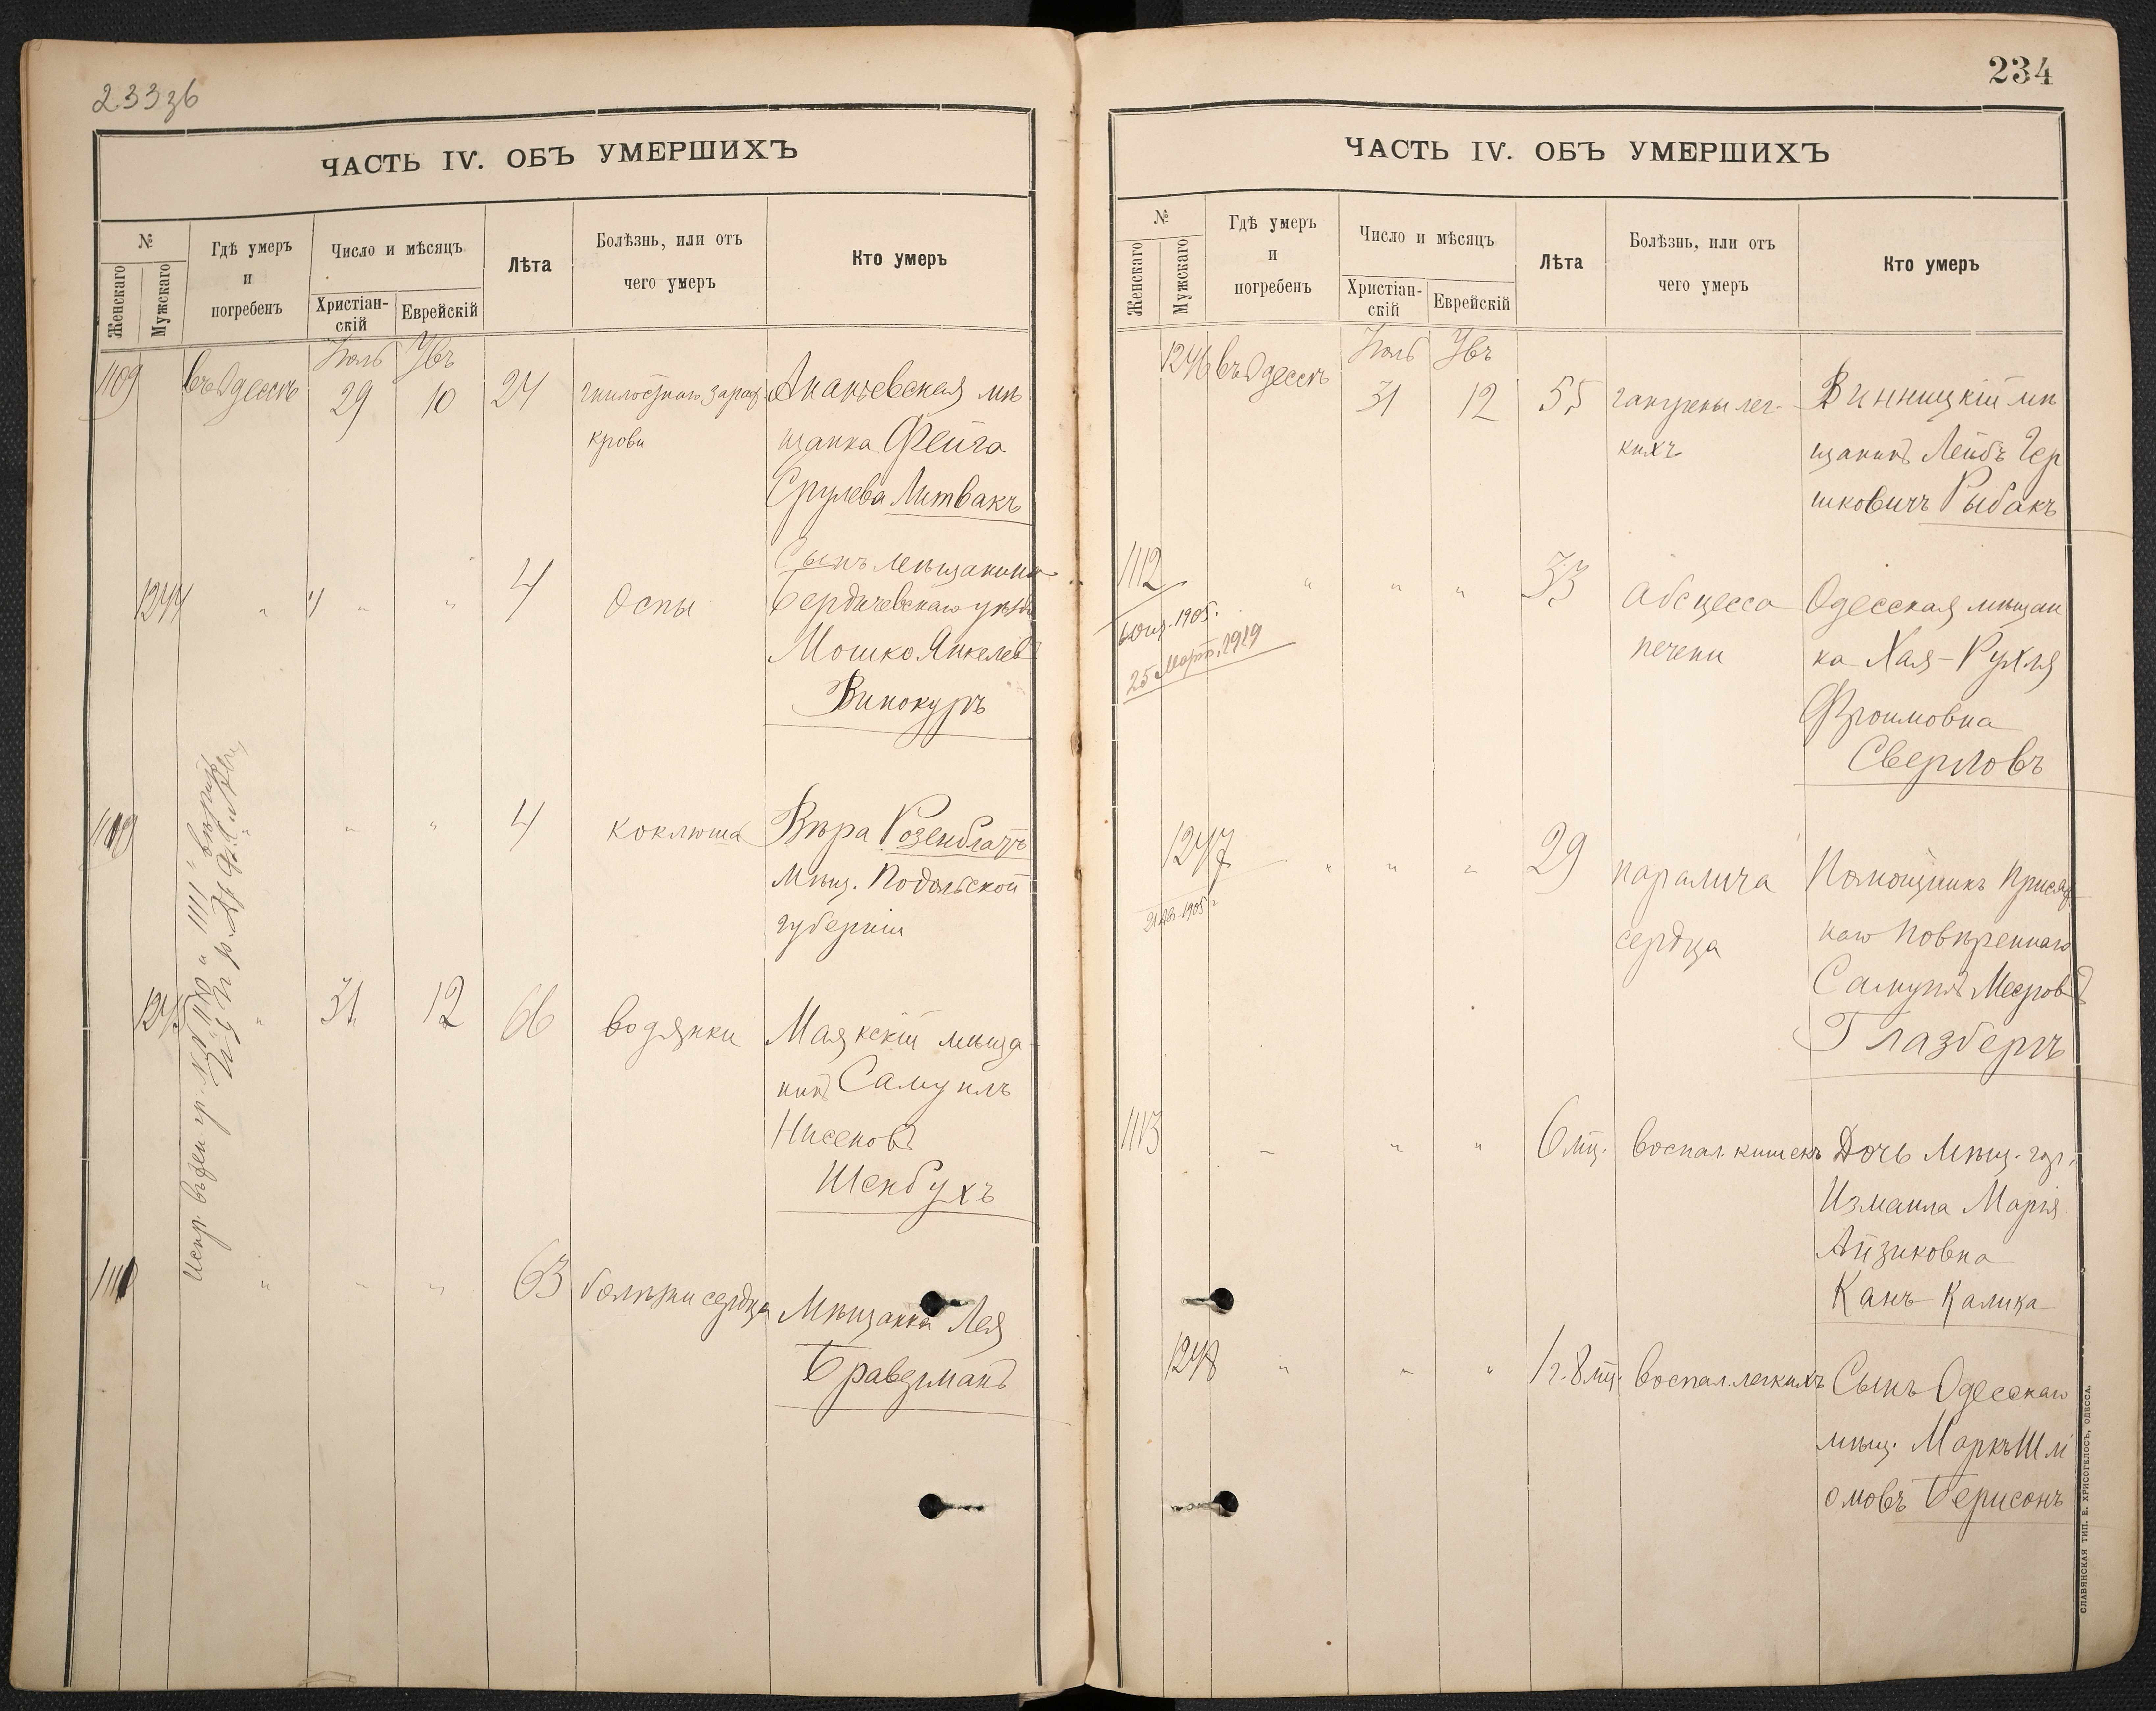 233зб
ЧАСТЬ IV. ОБЪ УМЕРШИХЪ
№
Женскаго
Мужскаго
Гдѣ умеръ
и
погребенъ
Число и мѣсяцъ
Христіан-
скій
Еврейскій
Лѣта
Болѣзнь, или отъ
чего умеръ
Кто умеръ
Іюль
1109
въ Одессѣ
29
10
24
гнилостнаго зараж.
крови
Ананьевская мѣ
щанка Фейга
Срулева Литвакъ
1244
"
"
"
4
Оспы
Сынъ мѣщанина
Бердичевскаго уѣзда
Мошко Янкелевъ
Винокуръ
"
"
4
коклюша
Вѣра Розенблатъ
Мѣщ. Подольской
губерніи
1245
"
31
12
66
водянки
Маякскій мѣща
нинъ Самуилъ
Нисеновъ
Шенбухъ
"
"
"
63
болѣзни сердца
Мѣщанка Лея
Бравэрманъ
234
ЧАСТЬ IV. ОБЪ УМЕРШИХЪ
№
Женскаго
Мужскаго
Гдѣ умеръ
и
погребенъ
Число и мѣсяцъ
Христіан-
скій
Еврейскій
Лѣта
Болѣзнь, или отъ
чего умеръ
Кто умеръ
Іюль
1246
въ Одессѣ
31
12
55
гангрены лег-
кихъ
Винницкій мѣ
щанинъ Лейбъ Гер
шковичъ Рыбакъ
1112
1905.
25 Март. 1919
"
"
"
33
Абсцесса
печени
Одесская мѣщан
ка Хая-Рухля
Фроимовна
Сверловъ
1247
1905
"
"
"
29
паралича
сердца
Помощникъ Присяж
наго Повѣреннаго
Самуилъ Мееровъ
Глазберъ
1113
"
"
"
6 мѣ.
воспал. кишекъ
Дочь Мѣщ. гор.
Измаила Марія
Айзиковна
Канъ-Калика
1248
"
"
"
1 г. 8 мѣ.
воспал. легкихъ
Сынъ Одесскаго
мѣщ. Маркъ Шл
омовъ Берисонъ
СЛАВЯНСКАЯ ТИП. Е. ХРИСОГЕЛОСЪ, ОДЕССА.